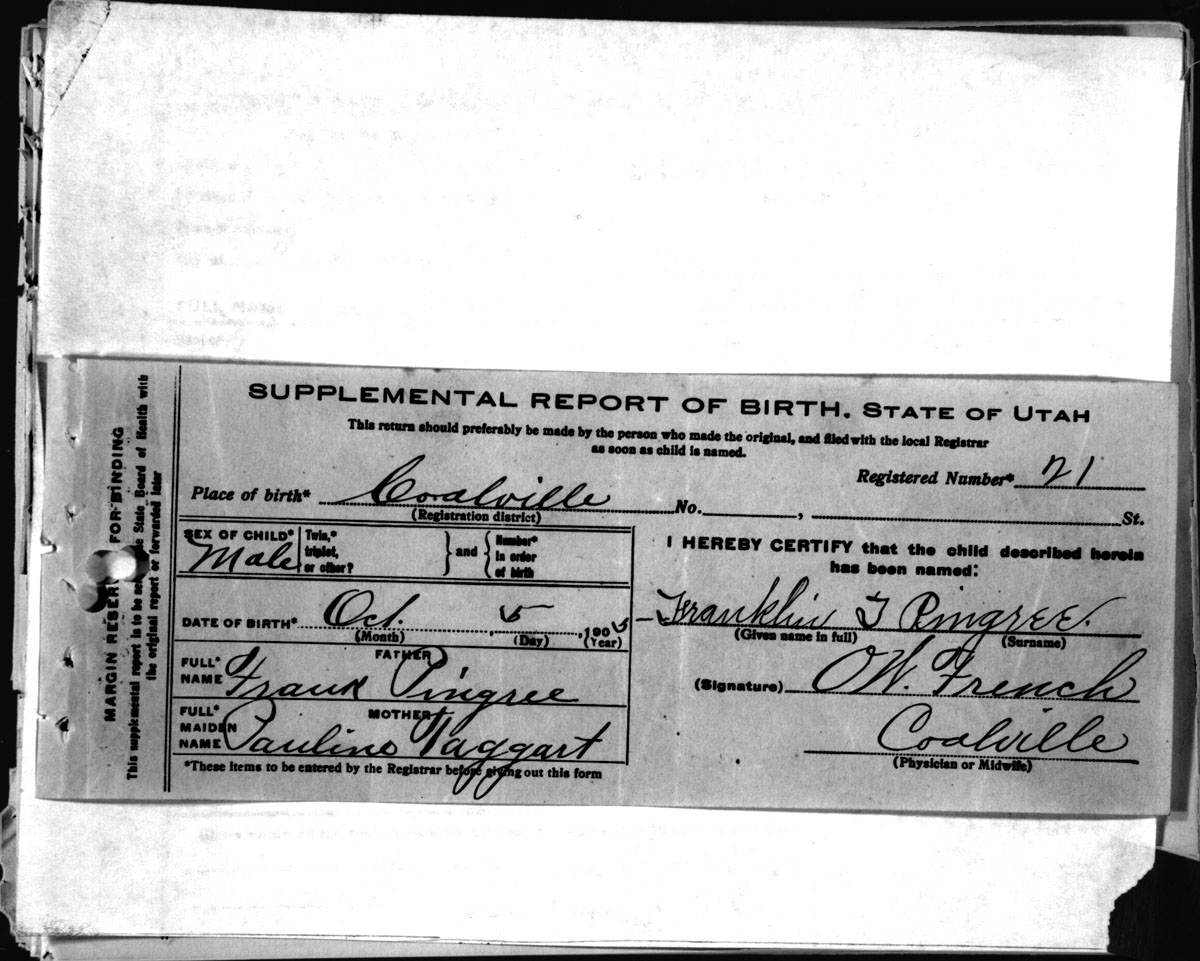 SUPPLEMENTAL REPORT OF BIRTH. STATE OF UTAH
This return should preferably be made by the person who made the original, and filed with the local Registrar
as soon as child is named.
Registered Number* 21
Place of birth* Coalville No. , St.
(Registration district)
SEX OF CHILD* Male
Twin,* triplet, or other? } and { Number* in order of birth
DATE OF BIRTH* Oct. 5, 1905
(Month) (Day) (Year)
FATHER
FULL* NAME Frank Pingree
MOTHER
FULL* MAIDEN NAME Pauline Taggart
*These items to be entered by the Registrar before giving out this form
I HEREBY CERTIFY that the child described herein
has been named:
Franklin T Pingree.
(Given name in full) (Surname)
(Signature) O.W. French
Coalville
(Physician or Midwife)
MARGIN RESER FOR BINDING
This supplemental report is to be se e State Board of Health with
the original report or forwarded later